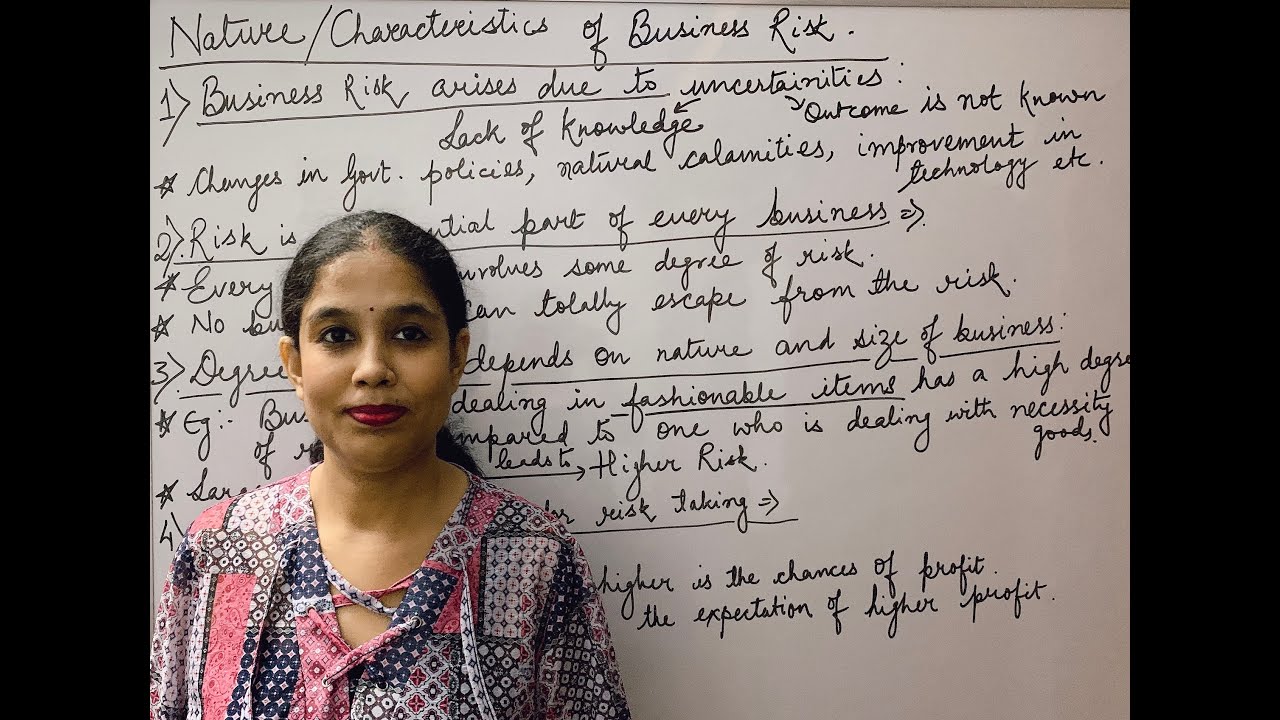 Nature/Characteristics of Business Risk.
1) Business Risk arises due to uncertainities:
Lack of knowledge
Outcome is not known
* Changes in Govt. policies, natural calamities, improvement in
technology etc.
2). Risk is part of every business ⇒
* Every some degree of risk.
* No can totally escape from the risk.
3). depends on nature and size of business:
* Eg:- dealing in fashionable items has a high
of to one who is dealing with necessity
goods.
* leads to Higher Risk.
4) risk taking ⇒
higher is the chances of profit.
the expectation of higher profit.